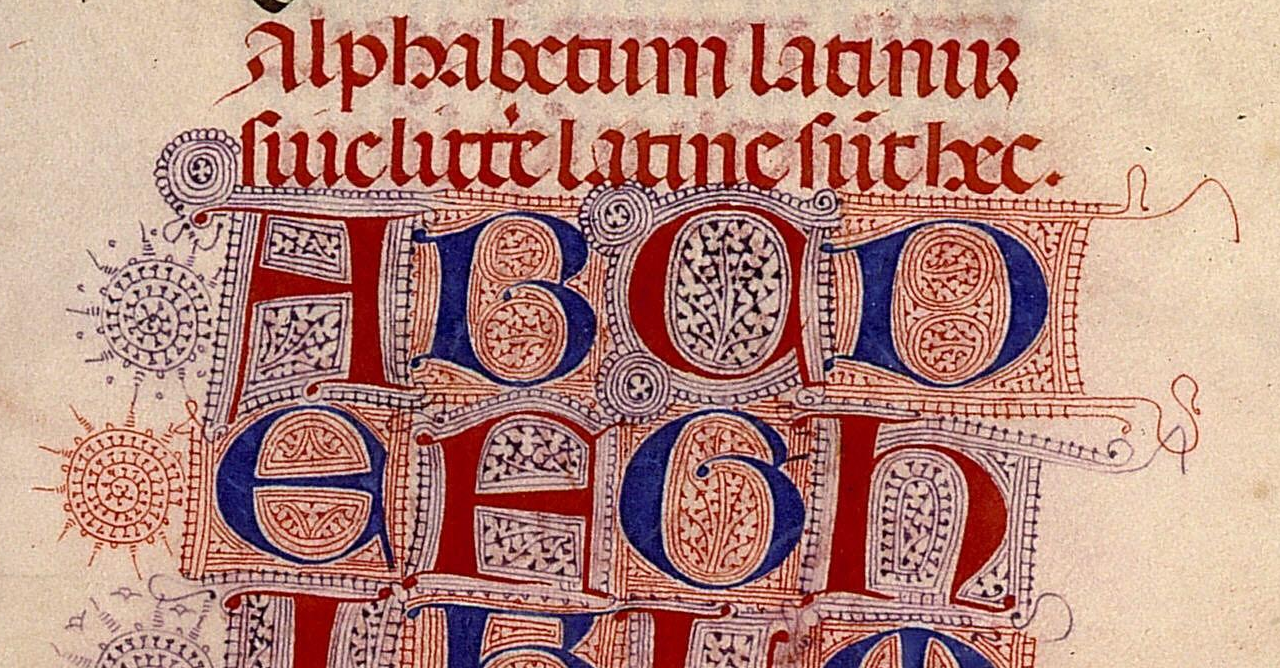 Alphabetum latinuꝫ
siue litt'e latine sūt hec.
A B C D
E F G h